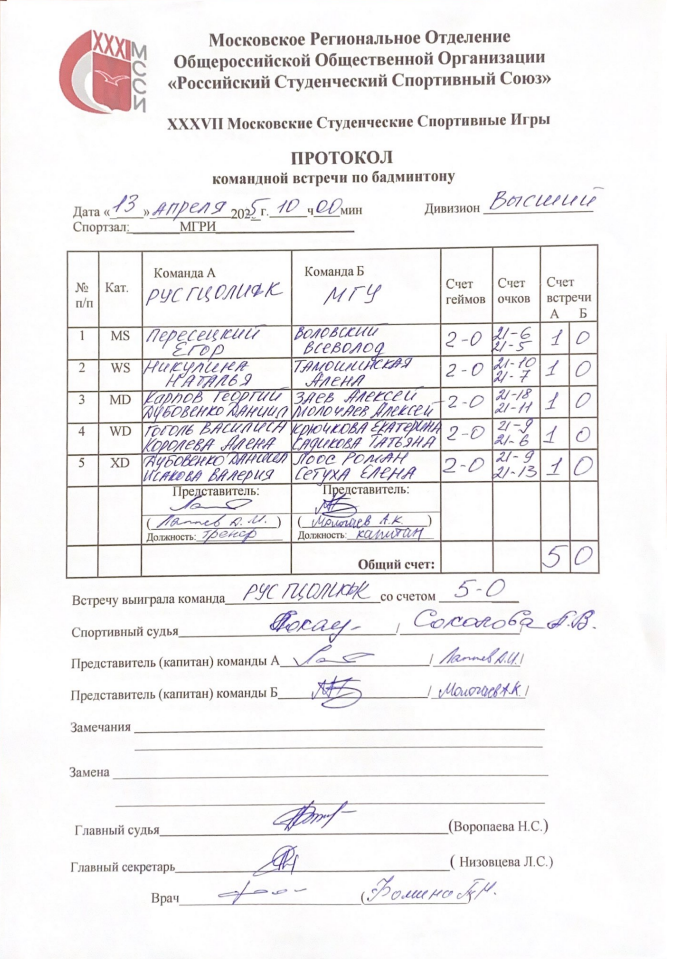 XXXI
МССИ
Московское Региональное Отделение
Общероссийской Общественной Организации
«Российский Студенческий Спортивный Союз»
XXXVII Московские Студенческие Спортивные Игры
ПРОТОКОЛ
командной встречи по бадминтону
Дата «13» апреля 2025 г. 10 ч 00 мин Дивизион Высший
Спортзал: МГРИ
№ п/п Кат. Команда А РУС ГЦОЛИФК Команда Б МГУ Счет геймов Счет очков Счет встречи А Б
1 MS Пересецкий Егор Воловский Всеволод 2-0 21-6 21-5 1 0
2 WS Никулина Наталья Алена 2-0 21-10 21-7 1 0
3 MD Карпов Георгий Дубовенко Даниил Заев Алексей Молочаев Алексей 2-0 21-18 21-11 1 0
4 WD Гоголь Василиса Королева Алена Крючкова Екатерина Садикова Татьяна 2-0 21-9 21-6 1 0
5 XD Дубовенко Даниил Исакова Валерия Лоос Роман Сетуха Елена 2-0 21-9 21-13 1 0
Представитель: Представитель:
(Лаптев Д.И.) (Молочаев А.К.)
Должность: тренер Должность: капитан
Общий счет: 5 0
Встречу выиграла команда РУС ГЦОЛИФК со счетом 5-0
Спортивный судья / Соколова / .В.
Представитель (капитан) команды А / Лаптев Д.И. /
Представитель (капитан) команды Б / Молочаев А.К. /
Замечания
Замена
Главный судья (Воропаева Н.С.)
Главный секретарь ( Низовцева Л.С.)
Врач (Фомина )